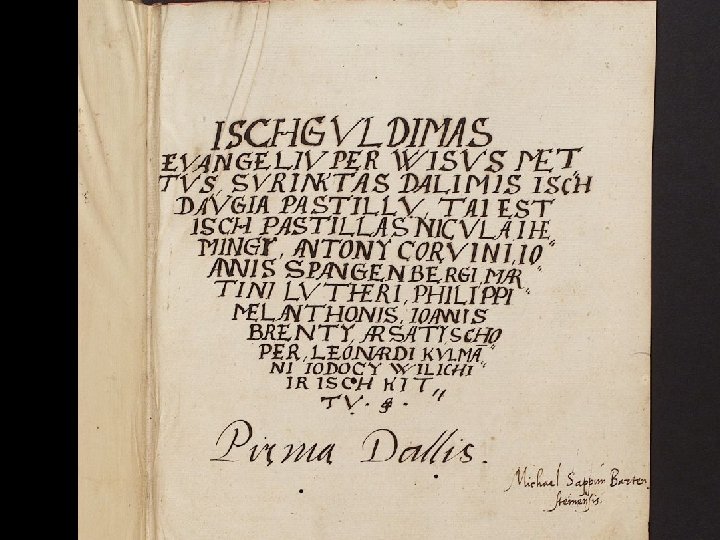 ISCHGVLDIMAS
EVANGELIV PER WISVS MET,,
TVS, SVRINKTAS DALIMIS ISCH
DAVGIA PASTILLV, TAI EST
ISCH PASTILLAS NICVLAI HE
MINGY, ANTONY CORVINI, IO"
ANNIS SPANGENBERGI, MAR"
TINI LVTHERI, PHILIPPI"
MELANTHONIS, IOANNIS
BRENTY, ARSATI SCHO
PER, LEONARDI KVLMA"
NI IODOCY WILICHI"
IR ISCH KIT,,
TV.
Pirma Dallis.
Michael Sappun Barten
steinensis.